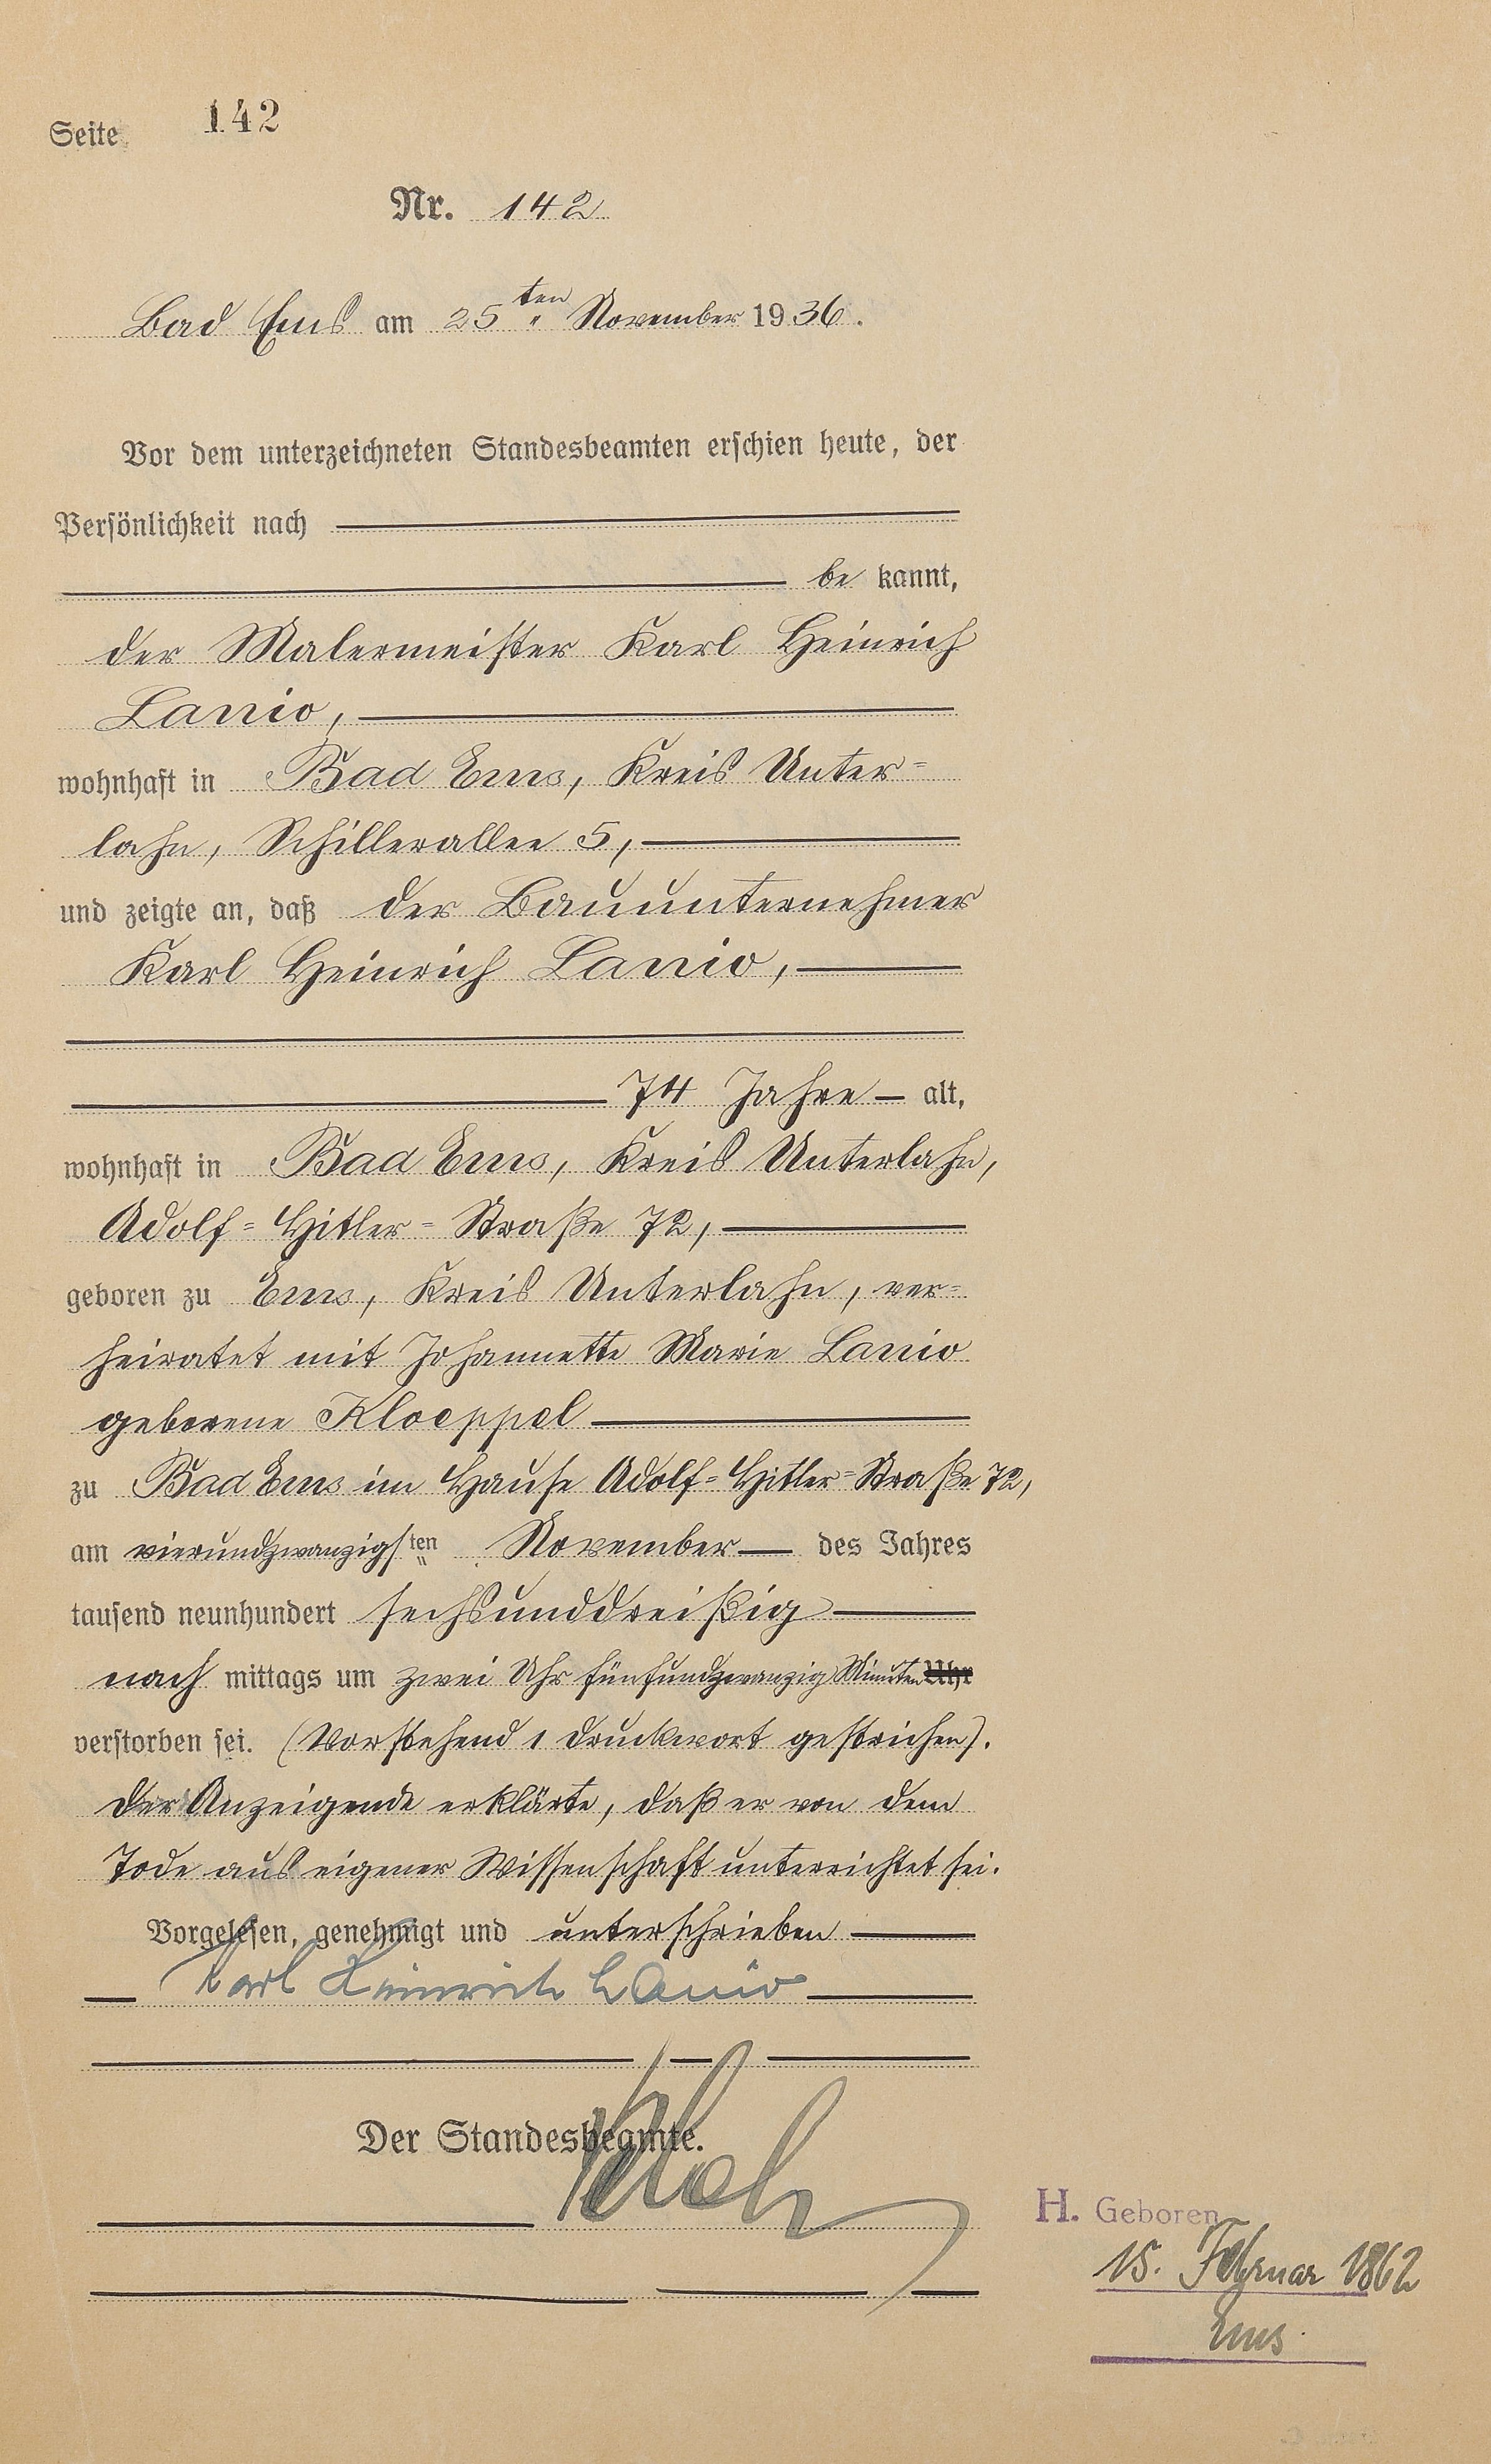 Seite 142
Nr. 142
Bad Ems am 25ten November 1936.
Vor dem unterzeichneten Standesbeamten erschien heute, der
Persönlichkeit nach
be kannt,
der Malermeister Karl Heinrich
Lanio,
wohnhaft in Bad Ems, Kreis Unter-
lahn, Schillerallee 5,
und zeigte an, daß der Bauunternehmer
Karl Heinrich Lanio,
74 Jahre alt,
wohnhaft in Bad Ems, Kreis Unterlahn,
Adolf-Hitler-Straße 72,
geboren zu Ems, Kreis Unterlahn, ver-
heiratet mit Johannette Marie Lanio
geborene Kloeppel
zu Bad Ems im Hause Adolf-Hitler-Straße 72,
am vierundzwanzigsten November des Jahres
tausend neunhundert sechsunddreißig
nach mittags um zwei Uhr fünfundzwanzig Minuten Uhr
verstorben sei. (Vorstehend 1 Druckwort gestrichen).
Der Anzeigende erklärte, daß er von dem
Tode aus eigener Wissenschaft unterrichtet sei.
Vorgelesen, genehmigt und unterschrieben
Karl Heinrich Lanio
Der Standesbeamte.
H. Geboren
15. Februar 1862
Ems